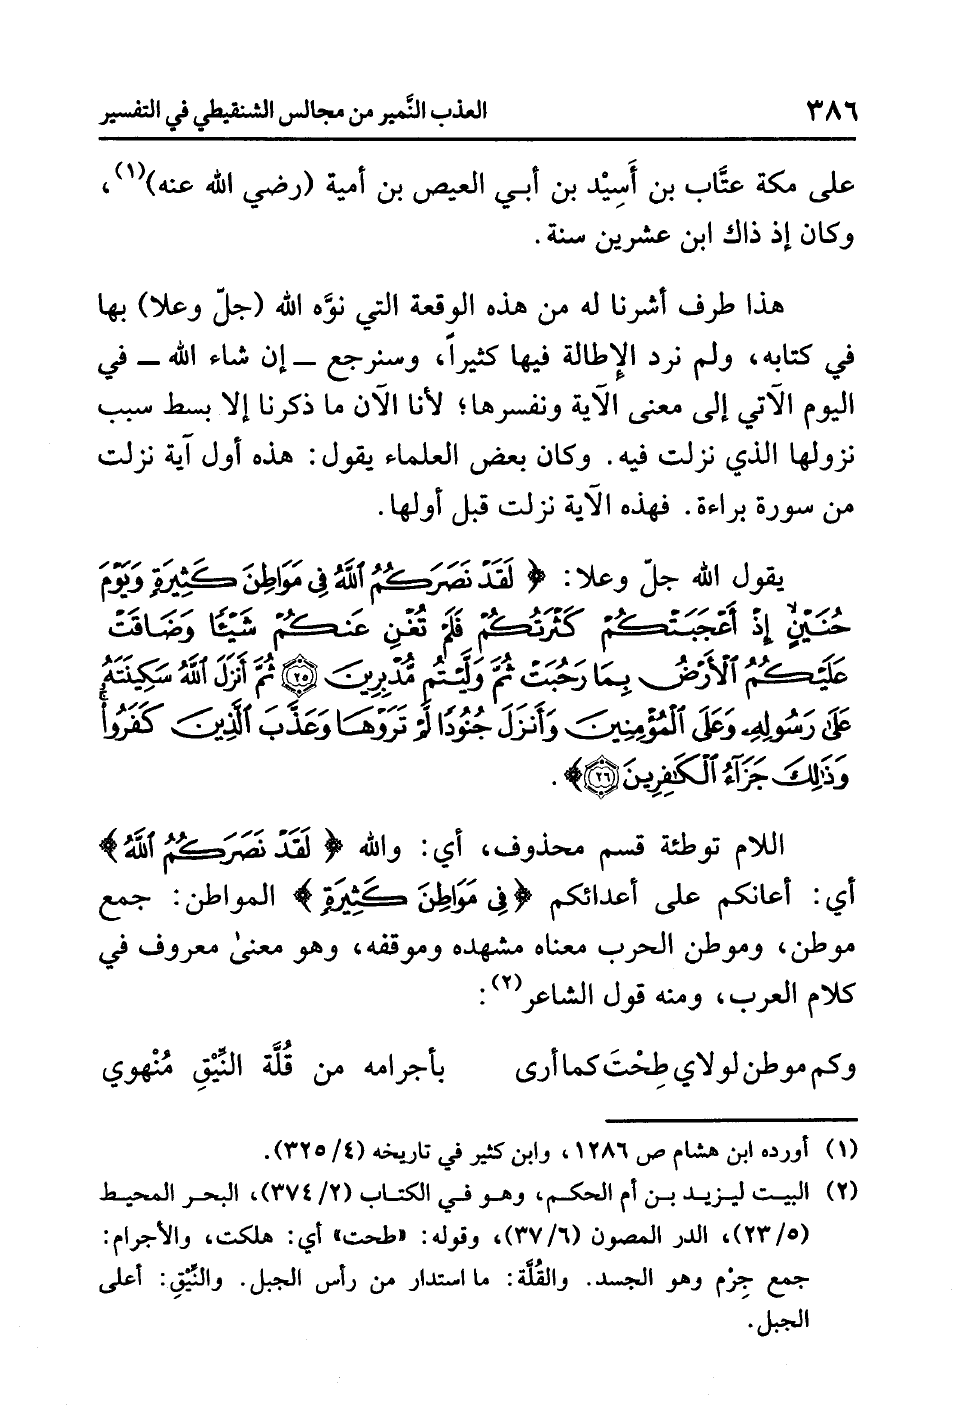 ٣٨٦ العذب النَّمير من مجالس الشنقيطي في التفسير
على مكة عتَّاب بن أَسِيْد بن أبي العيص بن أمية (رضي الله عنه)(١)،
وكان إذ ذاك ابن عشرين سنة.
هذا طرف أشرنا له من هذه الوقعة التي نوَّه الله (جلّ وعلا) بها
في كتابه، ولم نرد الإِطالة فيها كثيراً، وسنرجع ــ إن شاء الله ــ في
اليوم الآتي إلى معنى الآية ونفسرها؛ لأنا الآن ما ذكرنا إلا بسط سبب
نزولها الذي نزلت فيه. وكان بعض العلماء يقول: هذه أول آية نزلت
من سورة براءة. فهذه الآية نزلت قبل أولها.
يقول الله جلّ وعلا: ﴿ لَقَدْ نَصَرَكُمُ ٱللَّهُ فِى مَوَاطِنَ كَثِيرَةٍ وَيَوْمَ
حُنَيْنٍ إِذْ أَعْجَبَتْكُمْ كَثْرَتُكُمْ فَلَمْ تُغْنِ عَنكُمْ شَيْـًٔا وَضَاقَتْ
عَلَيْكُمُ ٱلْأَرْضُ بِمَا رَحُبَتْ ثُمَّ وَلَّيْتُم مُّدْبِرِينَ ٢٥ ثُمَّ أَنزَلَ ٱللَّهُ سَكِينَتَهُۥ
عَلَىٰ رَسُولِهِۦ وَعَلَى ٱلْمُؤْمِنِينَ وَأَنزَلَ جُنُودًا لَّمْ تَرَوْهَا وَعَذَّبَ ٱلَّذِينَ كَفَرُوا۟ۚ
وَذَٰلِكَ جَزَآءُ ٱلْكَٰفِرِينَ ٢٦﴾.
اللام توطئة قسم محذوف، أي: والله ﴿ لَقَدْ نَصَرَكُمُ ٱللَّهُ ﴾
أي: أعانكم على أعدائكم ﴿ فِى مَوَاطِنَ كَثِيرَةٍ ﴾ المواطن: جمع
موطن، وموطن الحرب معناه مشهده وموقفه، وهو معنىٰ معروف في
كلام العرب، ومنه قول الشاعر(٢):
وكم موطن لولاي طِحْتَ كما أرى بأجرامه من قُلَّة النِّيْقِ مُنْهوي
(١) أورده ابن هشام ص ١٢٨٦، وابن كثير في تاريخه (٤/ ٣٢٥).
(٢) البيت ليزيد بن أم الحكم، وهو في الكتاب (٢/ ٣٧٤)، البحر المحيط
(٥/ ٢٣)، الدر المصون (٦/ ٣٧)، وقوله: «طحت» أي: هلكت، والأجرام:
جمع جِرْم وهو الجسد. والقُلَّة: ما استدار من رأس الجبل. والنِّيْقِ: أعلى
الجبل.